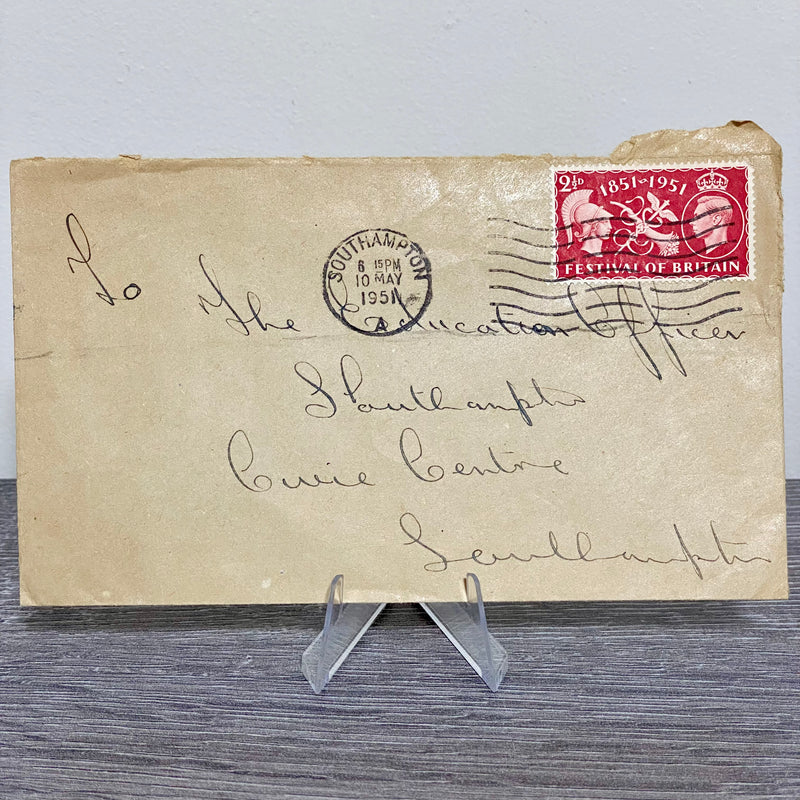 2½D 1851-1951
FESTIVAL OF BRITAIN
SOUTHAMPTON
6 15PM
10 MAY
1951
A
To
The Education Officer
Southampton
Civic Centre
Southampton